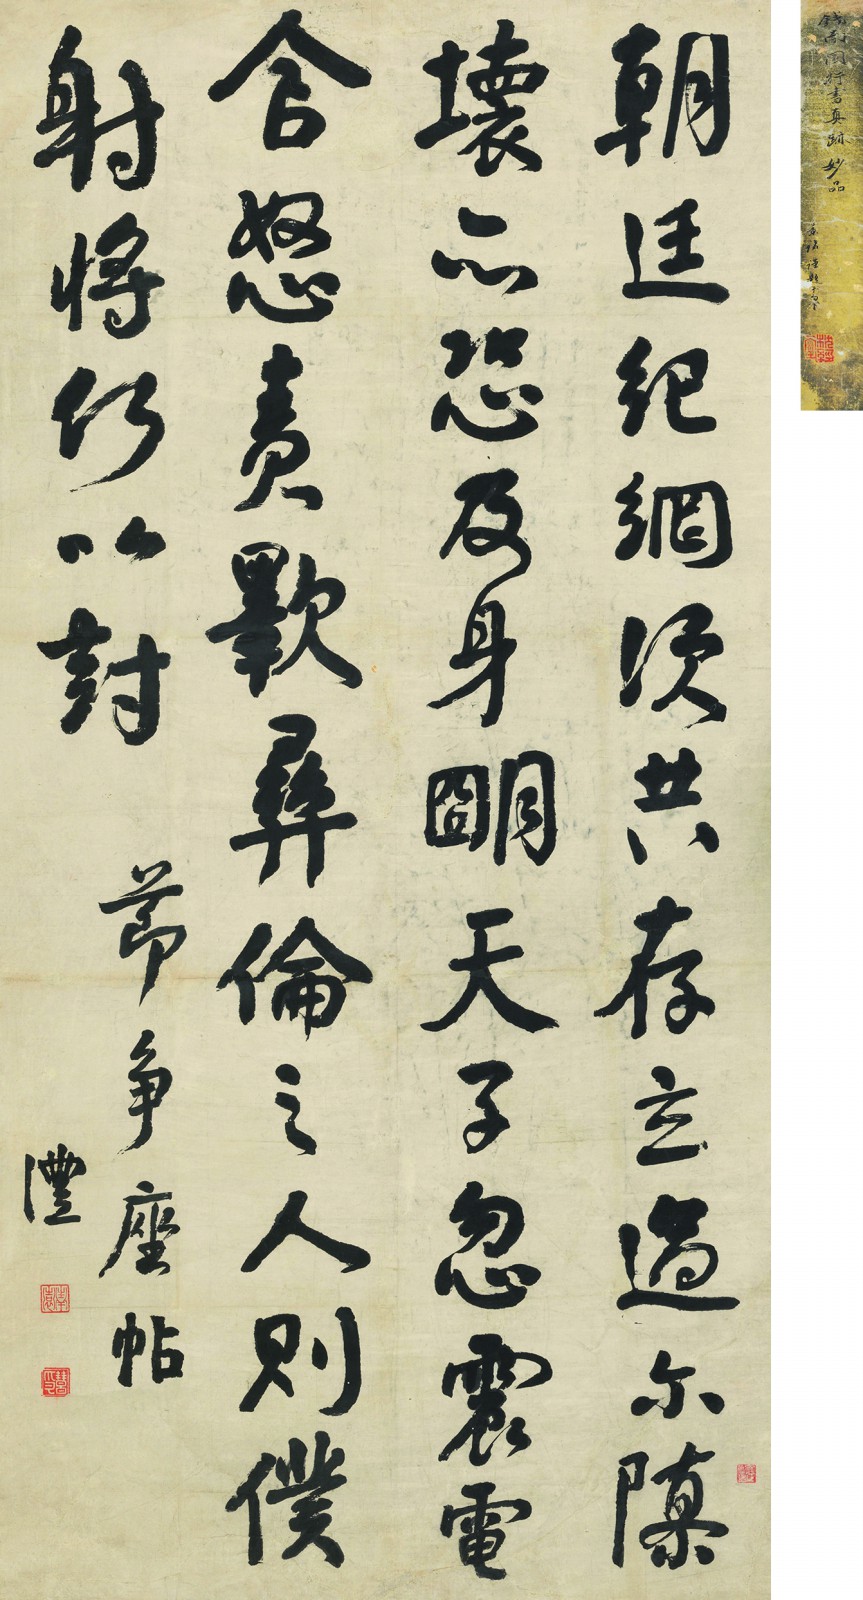 朝廷紀綱須共存立過尔隳
壞亦恐及身明天子忽震電
含怒責斁彝倫之人則僕
射將何以對
節争座帖
灃
錢南園行書真跡妙品